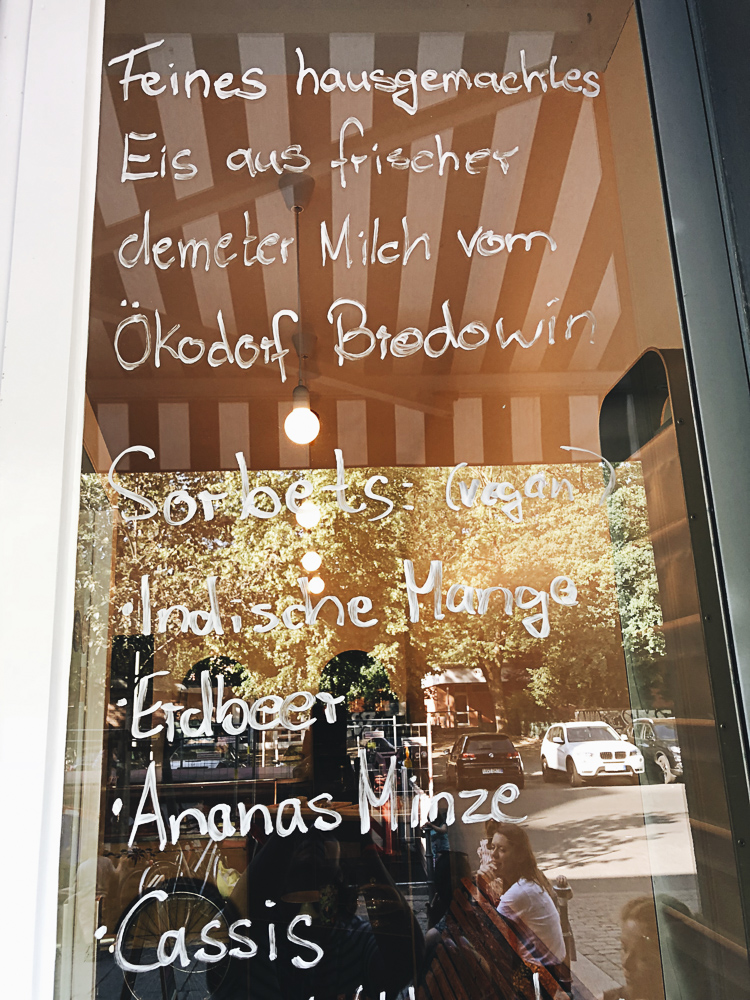 Feines hausgemachtes
Eis aus frischer
demeter Milch vom
Ökodorf Brodowin
Sorbets: (vegan)
· Indische Mango
· Erdbeer
· Ananas Minze
· Cassis